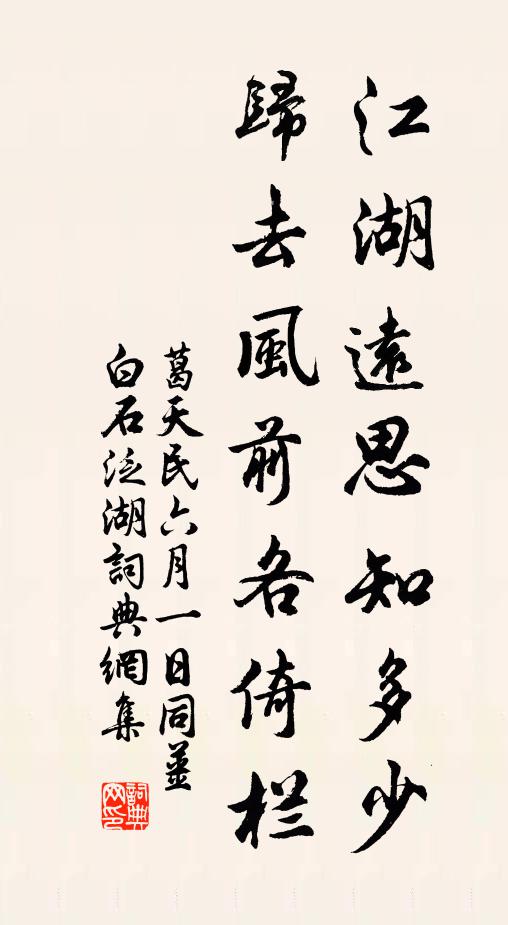 江湖遠思知多少
歸去風前各倚栏
葛天民六月一日同薑
白石泛湖詞典網集
詞典
网印